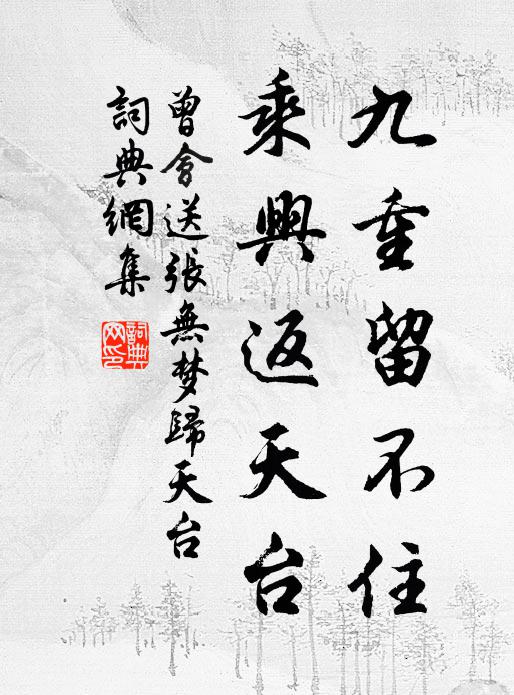 九重留不住
乘興返天台
曾會送張無梦歸天台
詞典網集
詞典
网印